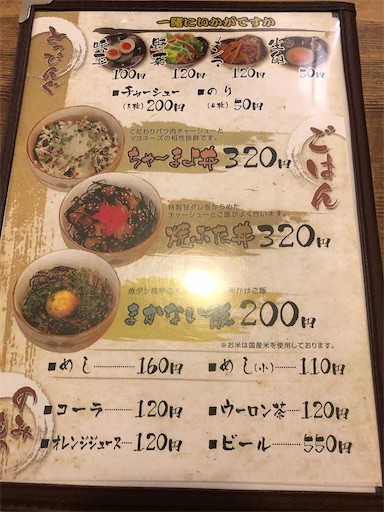 一緒にいかがですか
とっぴんぐ
味玉 野菜 メンマ 生卵
100円 120円 120円 50円
■チャーシュー ■のり
(3枚)200円 (4枚)50円
ごはん
こだわりバラ肉チャーシューと
マヨネーズの相性抜群です。
ちゃーまよ丼 320円
特製甘ダレをからめた
チャーシューとご飯がよく合います。
焼ぶた丼 320円
魚ダシ風味の
卵かけご飯
まかない飯 200円
※お米は国産米を使用しております。
■めし……160円 ■めし(小)……110円
■コーラ……120円 ■ウーロン茶……120円
■オレンジジュース…120円 ■ビール……550円